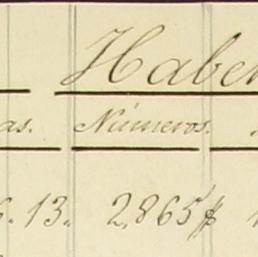 Haber
as. Números.
6.13. 2,865$